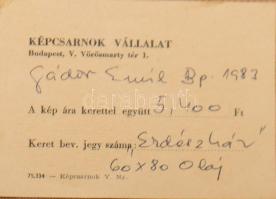 KÉPCSARNOK VÁLLALAT
Budapest, V. Vörösmarty tér 1.
Gádor Emil Bp. 1983
A kép ára kerettel együtt 5,400 Ft
Keret bev. jegy száma: "Erdészház"
60x80 Olaj
71.334 — Képcsarnok V. Ny.